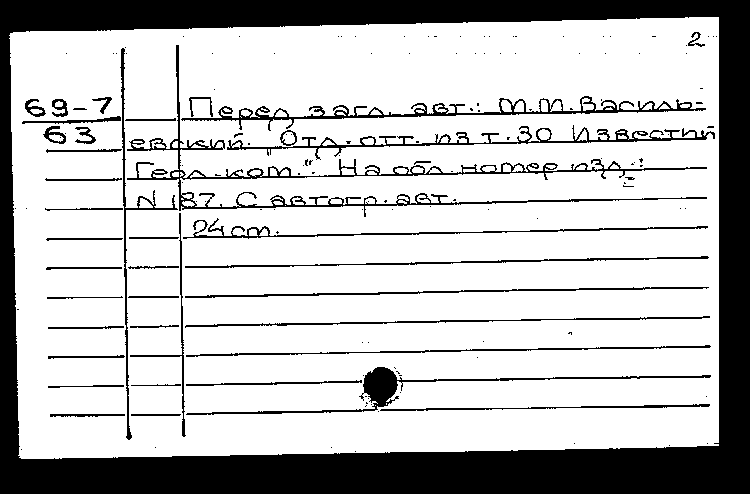 2
69-7
63
Перед загл. авт.: М.М. Василь-
евский. "Отд. отт. из т. 30 Известий
Геол. ком." На обл. номер изд.:
N 187. С автогр. авт.
24 cm.